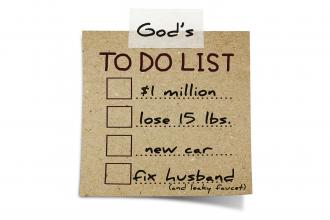 God's
TO DO LIST
$1 million
lose 15 lbs.
new car
fix husband
(and leaky faucet)